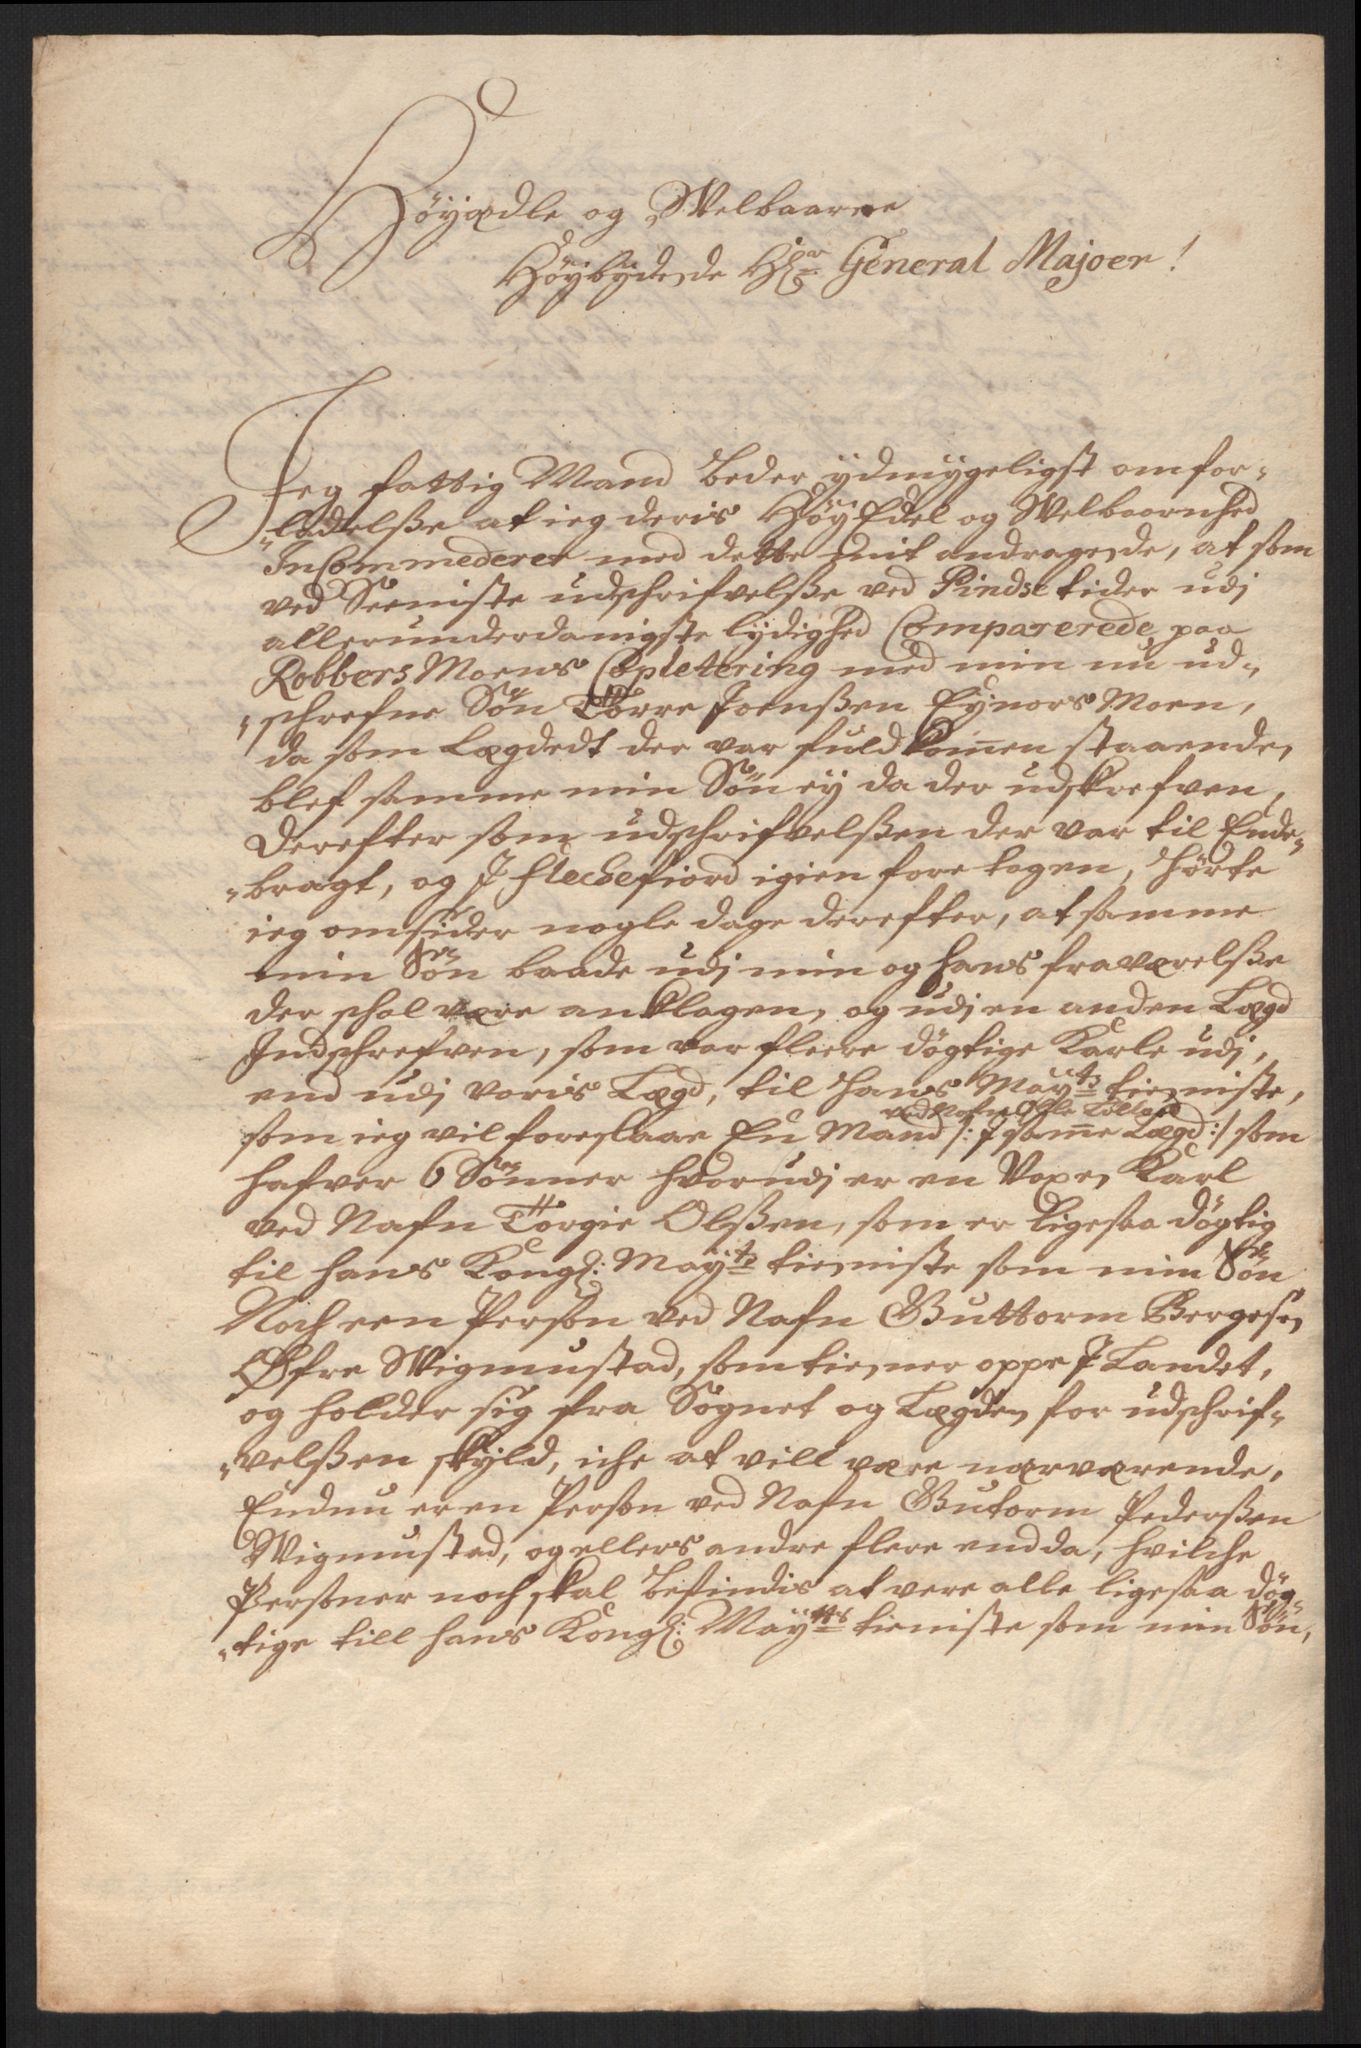 Höyædle og Welbaarne
Höybydende Hr General Majoer!
Jeg fattig Mand beder ydmygeligst om for-
-ladelsse at ieg deris Höy Edel og Welbaarnhed
Incommederer med dette mit andragende, at som
ved Seeniste udschrifvelsse ved Pindse tider udj
allerunderdanigste lydighed Comparerede paa
Robbers Moens Copletering med min nu ud-
-schrefne Sön Törre Joenssen Eynors Moen,
da som Lægdedt der var fuldkom̄en staaende,
blef samme min Sön ey da der udskrefven,
Derefter som udschrifvelssen der var til Ende-
-bragt, og J Flechefiord igien fore tagen, hörte
ieg omsider nogle dage derefter, at samme
min Sön baade udj min og hans fraværelsse
der schal være anklagen, og udj en anden Lægd
Indschrefven, som var fleere dögtige Karle udj,
end udj voris Lægd, til hans Mayts tienniste,
ved Nafn Olle
som ieg vil foreslaae En Mand /: J sam̄e Lægd :/ som
hafver 6 Sönner hvorudj er en Voxen Karl
ved Nafn Törgie Olssen, som er ligesaa dögtig
til hans Kongl: Mayts tienniste som min Sön
Noch een Person ved Nafn Guttorm Bergesen
Öfre Wigmustad, som tienner oppe J Landet,
og holder sig fra Sognet og Lægden for udschrif-
-velssen skyld, iche at vill være nærværende,
Endnu er en Person ved Nafn Gutorm Pederssen
Wigmustad, og ellers andre flere endda, hvilche
Personer noch skal befindis at vere alle ligesaa dög-
-tige till hans Kongl: Maytts tieniste som min Sön,